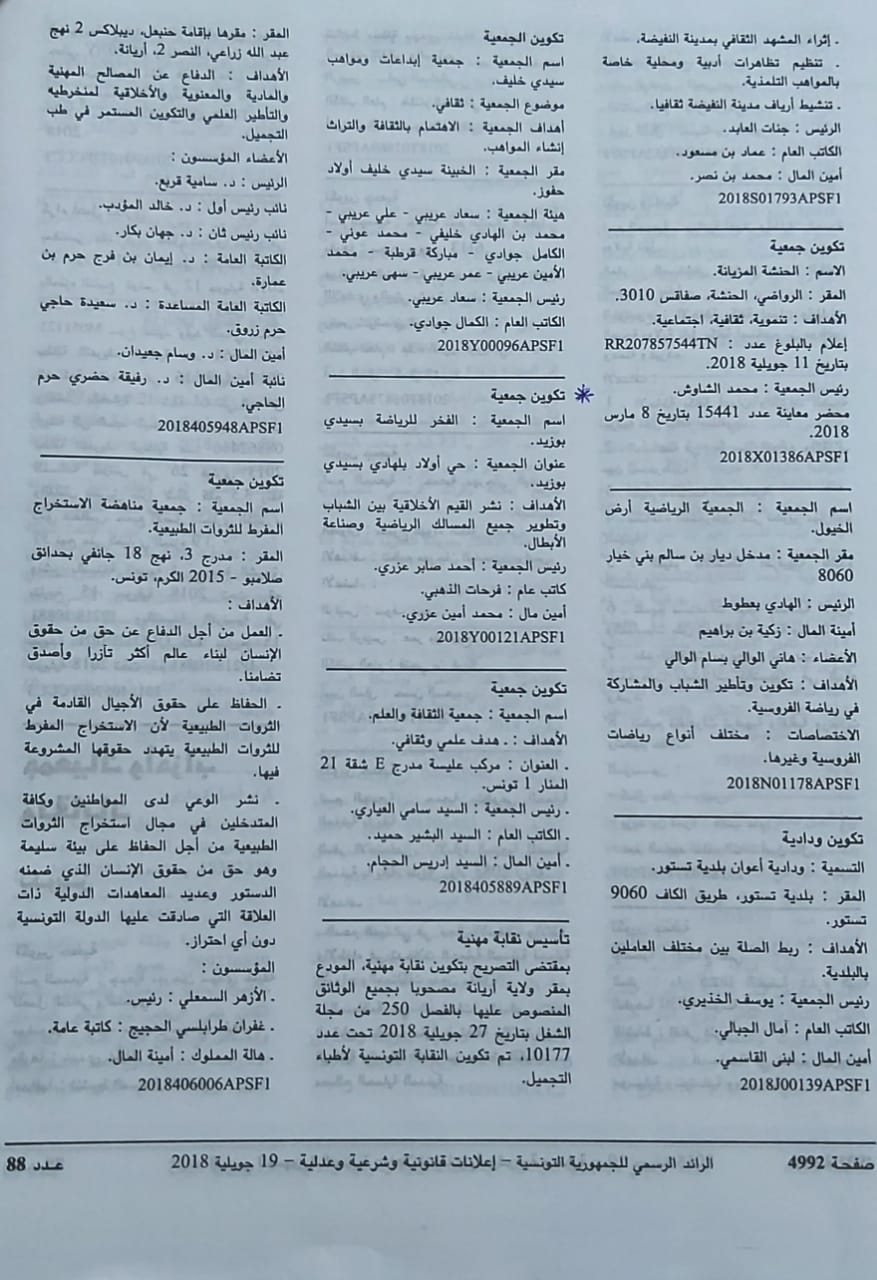 . إثراء المشهد الثقافي بمدينة النفيضة.
. تنظيم تظاهرات أدبية ومحلية خاصة
بالمواهب التلمذية.
. تنشيط أرياف مدينة النفيضة ثقافيا.
الرئيس : جنات العابد.
الكاتب العام : عماد بن مسعود.
أمين المال : محمد بن نصر.
2018S01793APSF1
تكوين جمعية
الاسم : الحنشة المزيانة.
المقر : الرواضي، الحنشة، صفاقس 3010.
الأهداف : تنموية، ثقافية، اجتماعية.
إعلام بالبلوغ عدد : RR207857544TN
بتاريخ 11 جويلية 2018.
رئيس الجمعية : محمد الشاوش.
محضر معاينة عدد 15441 بتاريخ 8 مارس
2018.
2018X01386APSF1
اسم الجمعية : الجمعية الرياضية أرض
الخيول.
مقر الجمعية : مدخل ديار بن سالم بني خيار
8060
الرئيس : الهادي بعطوط
أمينة المال : زكية بن براهيم
الأعضاء : هاني الوالي بسام الوالي
الأهداف : تكوين وتأطير الشباب والمشاركة
في رياضة الفروسية.
الاختصاصات : مختلف أنواع رياضات
الفروسية وغيرها.
2018N01178APSF1
تكوين ودادية
التسمية : ودادية أعوان بلدية تستور.
المقر : بلدية تستور، طريق الكاف 9060
تستور.
الأهداف : ربط الصلة بين مختلف العاملين
بالبلدية.
رئيس الجمعية : يوسف الخذيري.
الكاتب العام : آمال الجبالي.
أمين المال : لبنى القاسمي.
2018J00139APSF1
تكوين الجمعية
اسم الجمعية : جمعية إبداعات ومواهب
سيدي خليف.
موضوع الجمعية : ثقافي.
أهداف الجمعية : الاهتمام بالثقافة والتراث
إنشاء المواهب.
مقر الجمعية : الخبينة سيدي خليف أولاد
حفوز.
هيئة الجمعية : سعاد عريبي - علي عريبي -
محمد بن الهادي خليفي - محمد عوني -
الكامل جوادي - مباركة قرطبة - محمد
الأمين عريبي - عمر عريبي - سهى عريبي.
رئيس الجمعية : سعاد عريبي.
الكاتب العام : الكمال جوادي.
2018Y00096APSF1
تكوين جمعية
اسم الجمعية : الفخر للرياضة بسيدي
بوزيد.
عنوان الجمعية : حي أولاد بلهادي بسيدي
بوزيد.
الأهداف : نشر القيم الأخلاقية بين الشباب
وتطوير جميع المسالك الرياضية وصناعة
الأبطال.
رئيس الجمعية : أحمد صابر عزري.
كاتب عام : فرحات الذهبي.
أمين مال : محمد أمين عزري.
2018Y00121APSF1
تكوين جمعية
اسم الجمعية : جمعية الثقافة والعلم.
الأهداف : . هدف علمي وثقافي.
. العنوان : مركب عليسة مدرج E شقة 21
المنار 1 تونس.
. رئيس الجمعية : السيد سامي العياري.
. الكاتب العام : السيد البشير حميد.
. أمين المال : السيد إدريس الحجام.
2018405889APSF1
تأسيس نقابة مهنية
بمقتضى التصريح بتكوين نقابة مهنية، المودع
بمقر ولاية أريانة مصحوبا بجميع الوثائق
المنصوص عليها بالفصل 250 من مجلة
الشغل بتاريخ 27 جويلية 2018 تحت عدد
10177، تم تكوين النقابة التونسية لأطباء
التجميل.
المقر : مقرها بإقامة حنبعل، ديبلاكس 2 نهج
عبد الله زراعي، النصر 2، أريانة.
الأهداف : الدفاع عن المصالح المهنية
والمادية والمعنوية والأخلاقية لمنخرطيه
والتأطير العلمي والتكوين المستمر في طب
التجميل.
الأعضاء المؤسسون :
الرئيس : د. سامية قربع.
نائب رئيس أول : د. خالد المؤدب.
نائب رئيس ثان : د. جهان بكار.
الكاتبة العامة : د. إيمان بن فرج حرم بن
عمارة.
الكاتبة العامة المساعدة : د. سعيدة حاجي
حرم زروق.
أمين المال : د. وسام جعيدان.
نائبة أمين المال : د. رفيقة حضري حرم
الحاجي.
2018405948APSF1
تكوين جمعية
اسم الجمعية : جمعية مناهضة الاستخراج
المفرط للثروات الطبيعية.
المقر : مدرج 3، نهج 18 جانفي بحدائق
صلامبو - 2015 الكرم، تونس.
الأهداف :
. العمل من أجل الدفاع عن حق من حقوق
الإنسان لبناء عالم أكثر تآزرا وأصدق
تضامنا.
. الحفاظ على حقوق الأجيال القادمة في
الثروات الطبيعية لأن الاستخراج المفرط
للثروات الطبيعية يتهدد حقوقها المشروعة
فيها.
. نشر الوعي لدى المواطنين وكافة
المتدخلين في مجال استخراج الثروات
الطبيعية من أجل الحفاظ على بيئة سليمة
وهو حق من حقوق الإنسان الذي ضمنه
الدستور وعديد المعاهدات الدولية ذات
العلاقة التي صادقت عليها الدولة التونسية
دون أي احتراز.
المؤسسون :
. الأزهر السمعلي : رئيس.
. غفران طرابلسي الحجيج : كاتبة عامة.
. هالة المملوك : أمينة المال.
2018406006APSF1
صفحة 4992
الرائد الرسمي للجمهورية التونسية – إعلانات قانونية وشرعية وعدلية – 19 جويلية 2018
عـدد 88